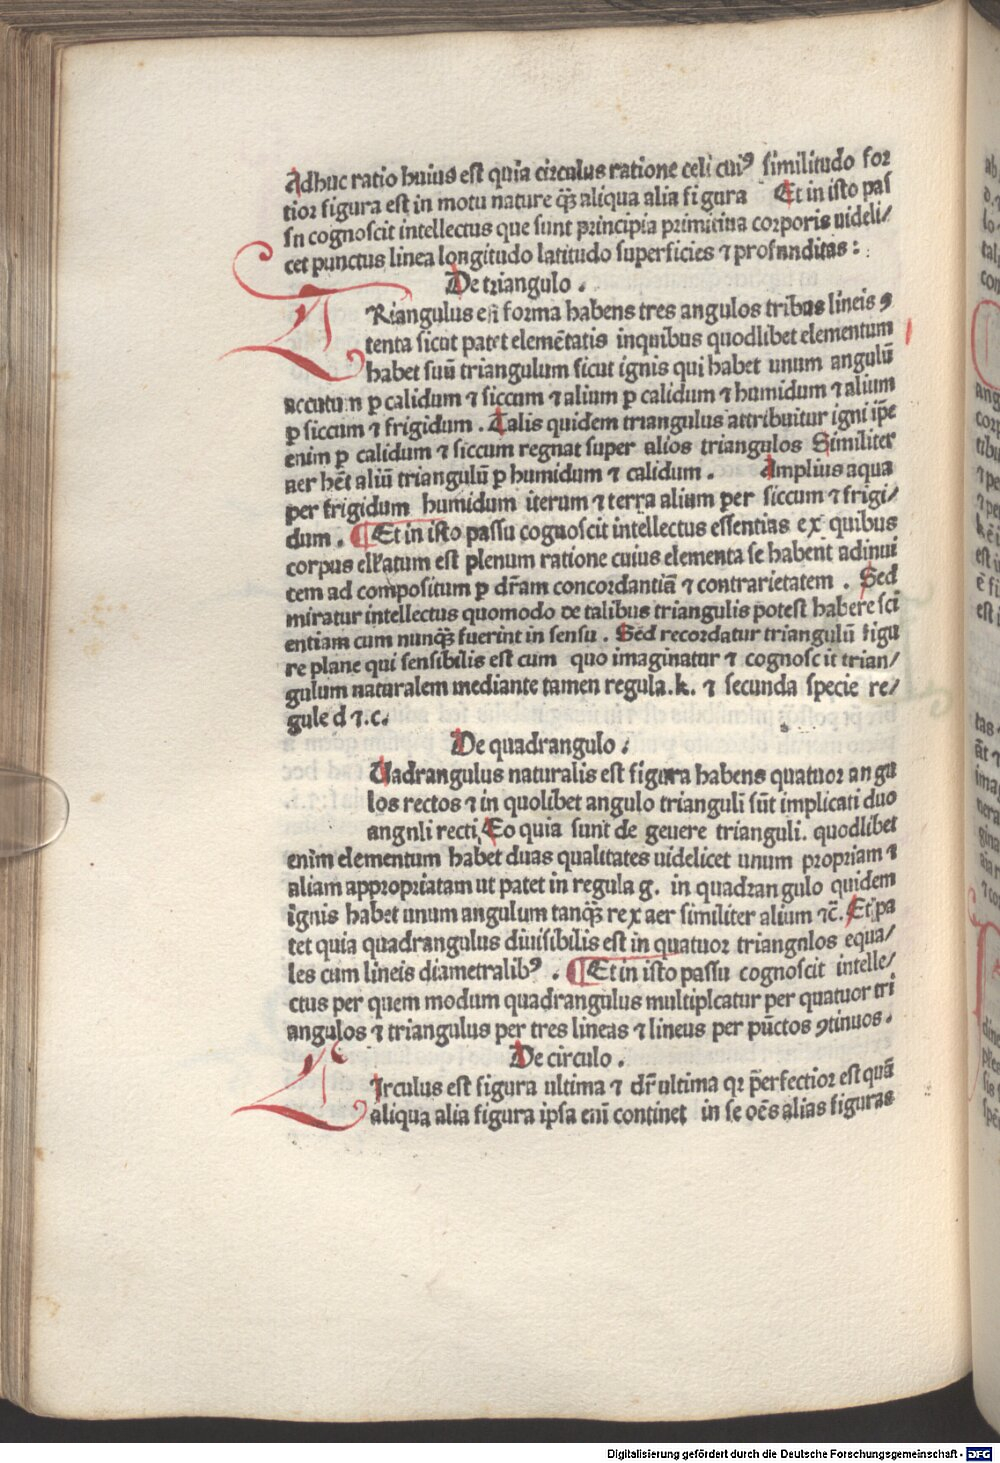 Adhuc ratio huius est quia circulus ratione celi cuiꝰ similitudo for
tior figura est in motu nature qꝫ̃ aliqua alia figura Et in isto pas
sn cognoscit intellectus que sunt principia primitiua corporis uideli/
cet punctus linea longitudo latitudo superficies ⁊ profunditas :
De triangulo .
TRiangulus est forma habens tres angulos tribus lineis ꝯ
tenta sicut patet elemẽtatis inquibus quodlibet elementum
habet suũ triangulum sicut ignis qui habet unum angulũ
accutum ꝑ calidum ⁊ siccum ⁊ alium ꝑ calidum ⁊ humidum ⁊ alium
ꝑ siccum ⁊ frigidum . Talis quidem triangulus attribuitur igni ip̃e
enim ꝑ calidum ⁊ siccum regnat super alios triangulos Similiter
aer hẽt aliũ triangulũ ꝑ humidum ⁊ calidum . Amplius aqua
per frigidum humidum iterum ⁊ terra alium per siccum ⁊ frigi/
dum . Et in isto passu cognoscit intellectus essentias ex quibus
corpus elẽatum est plenum ratione cuius elementa se habent adinui
tem ad compositum ꝑ dr̃am concordantiã ⁊ contrarietatem . Sed
miratur intellectus quomodo de talibus triangulis potest habere sci
entiam cum nunqꝫ̃ fuerint in sensu . Sed recordatur triangulũ figu
re plane qui sensibilis est cum quo imaginatur ⁊ cognoscit trian/
gulum naturalem mediante tamen regula.k. ⁊ secunda specie re/
gule d ⁊.c.
De quadrangulo .
Uadrangulus naturalis est figura habens quatuor angu
los rectos ⁊ in quolibet angulo trianguli sũt implicati duo
angnli recti, Eo quia sunt de geuere trianguli. quodlibet
enim elementum habet duas qualitates uidelicet unum propriam ⁊
aliam appropriatam ut patet in regula g. in quadrangulo quidem
ignis habet unum angulum tanqꝫ̃ rex aer similiter alium ⁊c̃. Et pa
tet quia quadrangulus diuisibilis est in quatuor triangnlos equa/
les cum lineis diametralibꝰ . Et in isto passu cognoscit intelle/
ctus per quem modum quadrangulus multiplcatur per quatuor tri
angulos ⁊ triangulus per tres lineas ⁊ lineus per pũctos ꝯtinuos.
De circulo .
CIrculus est figura ultima ⁊ dr̃ ultima qꝛ p̃erfectior est quã
aliqua alia figura ipsa enĩ continet in se oẽs alias figuras
Digitalisierung gefördert durch die Deutsche Forschungsgemeinschaft - DFG